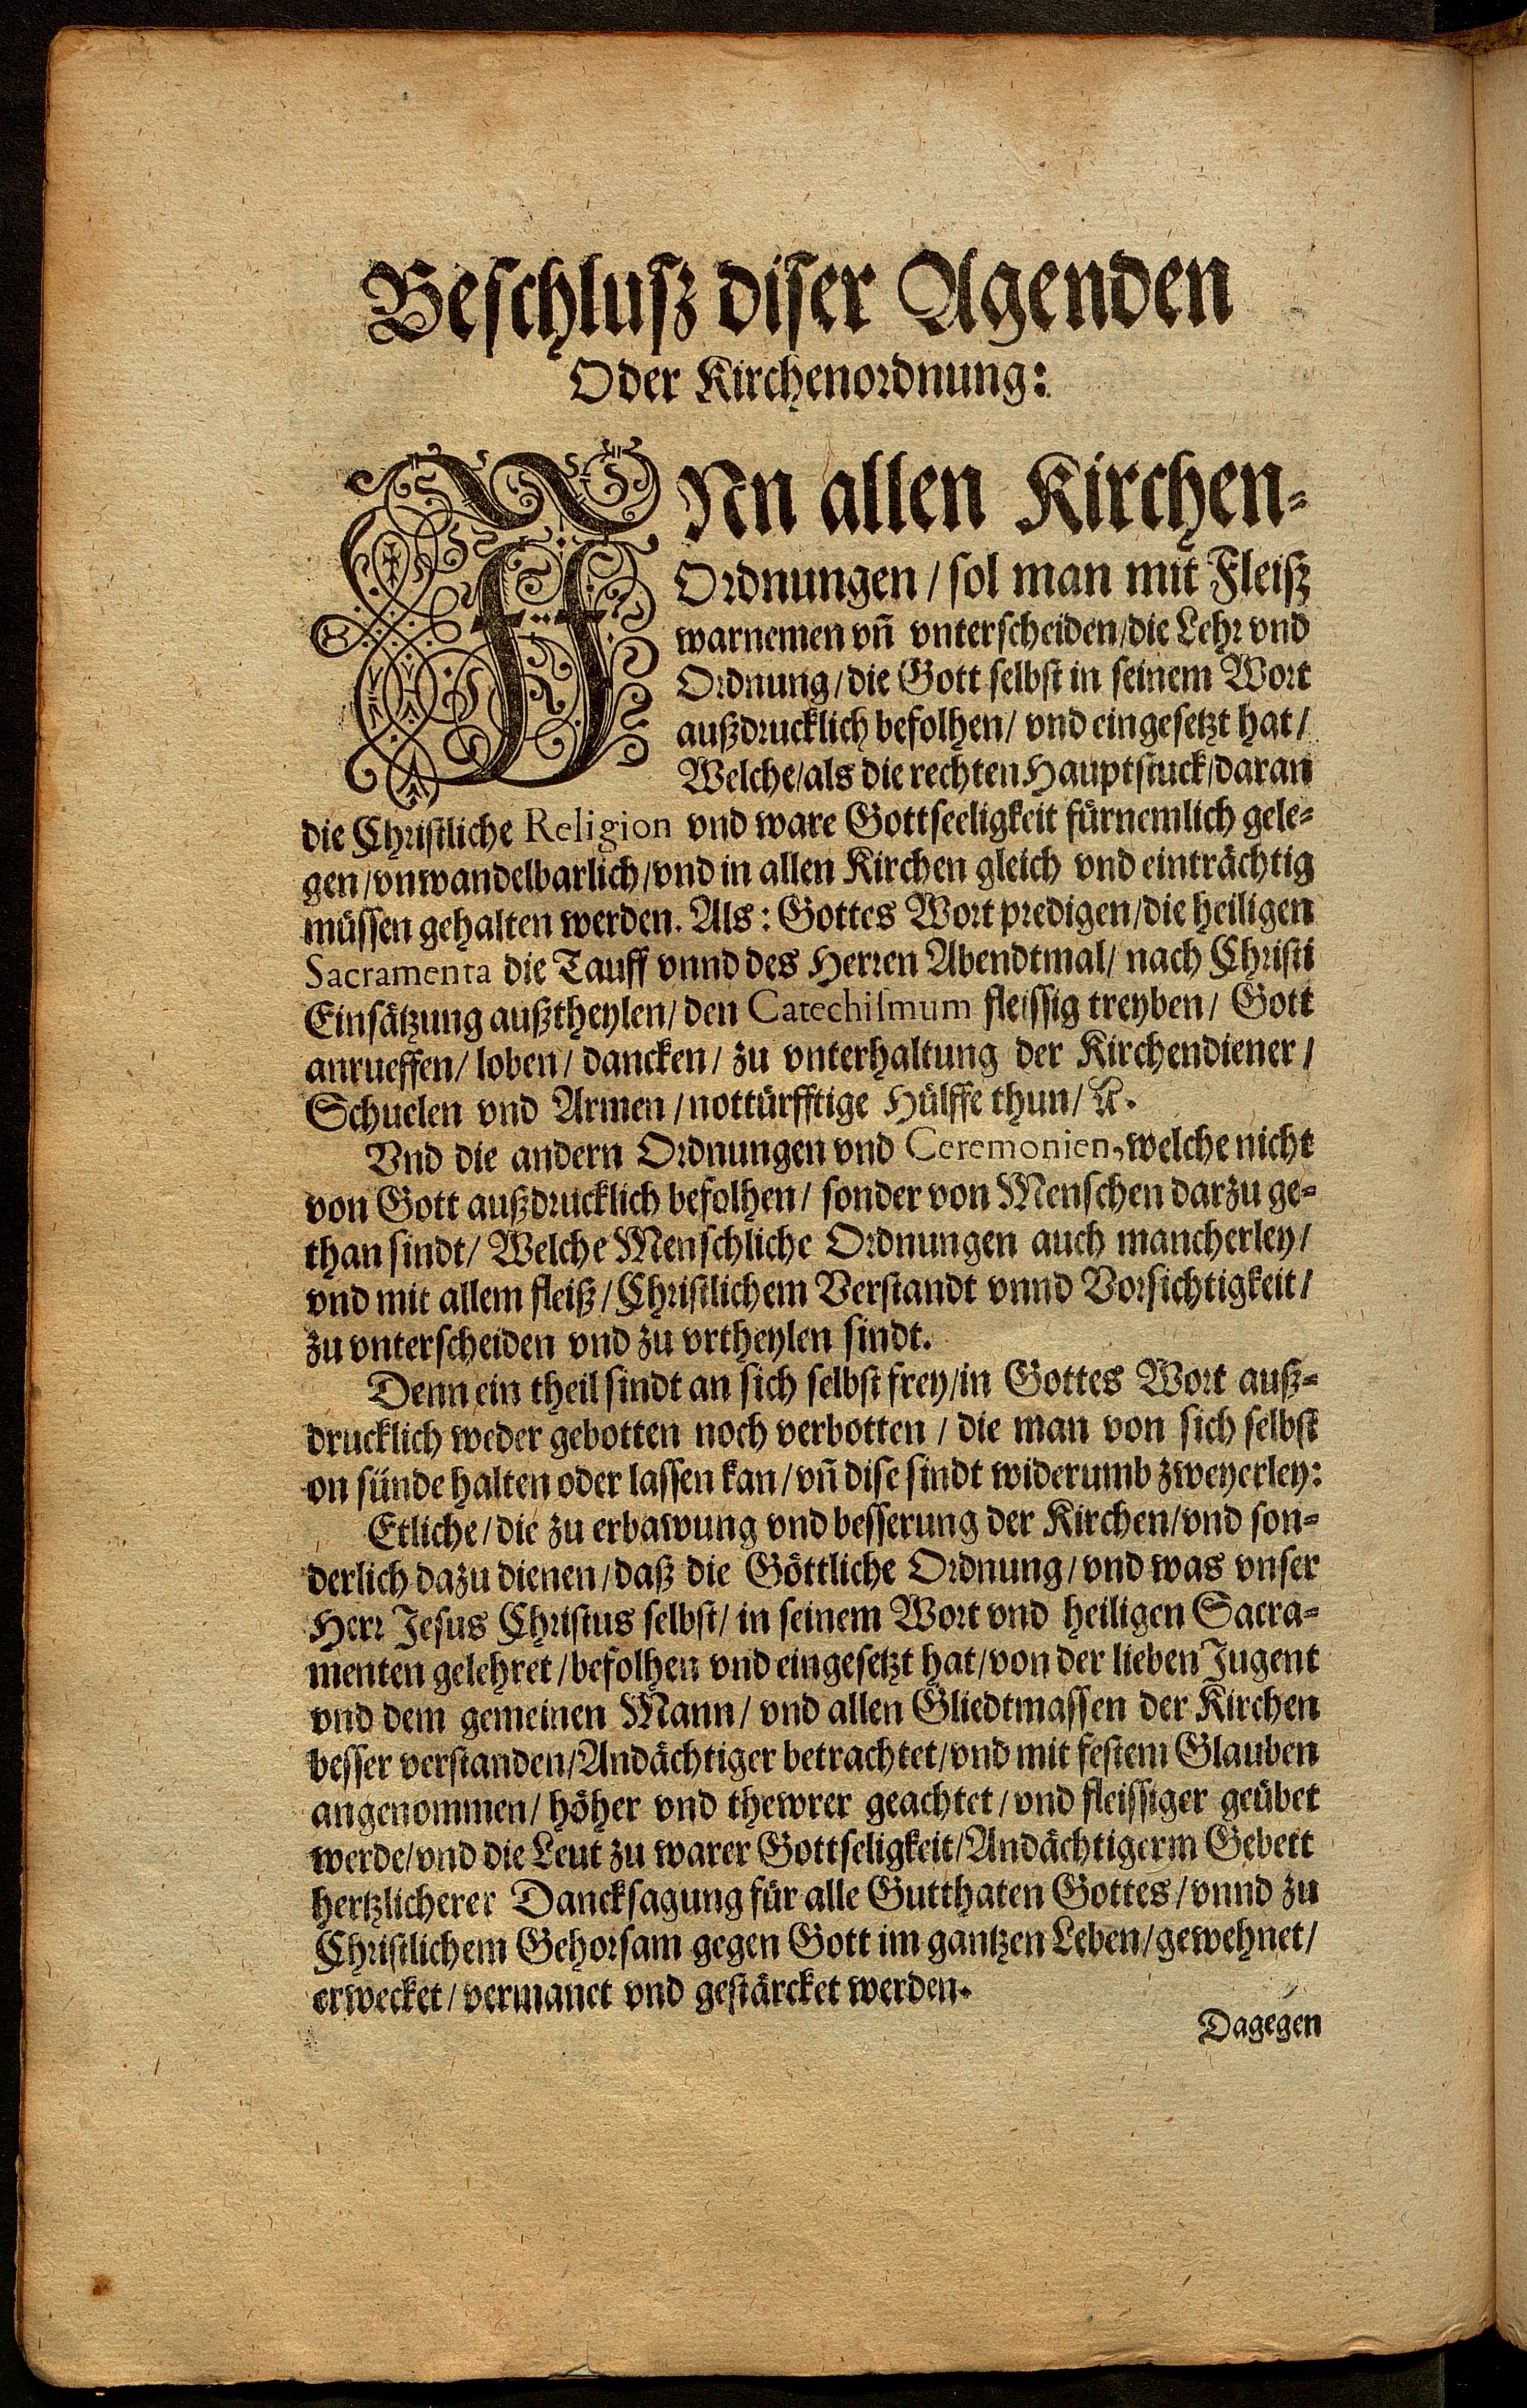 Beschlusz diser Agenden
Oder Kirchenordnung:
INn allen Kirchen-
Ordnungen / sol man mit Fleiß
warnemen vñ vnterscheiden/die Lehr vnd
Ordnung/die Gott selbst in seinem Wort
außdrucklich befolhen/ vnd eingesetzt hat/
Welche/als die rechten Hauptstuck/daran
die Christliche Religion vnd ware Gottseeligkeit fürnemlich gele-
gen/vnwandelbarlich/vnd in allen Kirchen gleich vnd einträchtig
müssen gehalten werden. Als: Gottes Wort predigen/die heiligen
Sacramenta die Tauff vnnd des Herren Abendtmal/ nach Christi
Einsätzung außtheylen/ den Catechismum fleissig treyben/ Gott
anrueffen/ loben/ dancken/ zu vnterhaltung der Kirchendiener/
Schuelen vnd Armen / nottürfftige Hülffe thun/ ꝛc.
Vnd die andern Ordnungen vnd Ceremonien, welche nicht
von Gott außdrucklich befolhen/ sonder von Menschen darzu ge-
than sindt/ Welche Menschliche Ordnungen auch mancherley/
vnd mit allem fleiß/ Christlichem Verstandt vnnd Vorsichtigkeit/
zu vnterscheiden vnd zu vrtheylen sindt.
Denn ein theil sindt an sich selbst frey/in Gottes Wort auß-
drucklich weder gebotten noch verbotten / die man von sich selbst
on sünde halten oder lassen kan/ vñ dise sindt widerumb zweyerley:
Etliche/die zu erbawung vnd besserung der Kirchen/vnd son-
derlich dazu dienen/daß die Göttliche Ordnung/vnd was vnser
Herr Jesus Christus selbst/ in seinem Wort vnd heiligen Sacra-
menten gelehret/befolhen vnd eingesetzt hat/von der lieben Jugent
vnd dem gemeinen Mann/ vnd allen Gliedtmassen der Kirchen
besser verstanden/Andächtiger betrachtet/vnd mit festem Glauben
angenommen/ höher vnd thewrer geachtet/ vnd fleissiger geübet
werde/vnd die Leut zu warer Gottseligkeit/Andächtigerm Gebett
hertzlicherer Dancksagung für alle Gutthaten Gottes/vnnd zu
Christlichem Gehorsam gegen Gott im gantzen Leben/gewehnet/
erwecket/ vermanet vnd gestärcket werden.
Dagegen